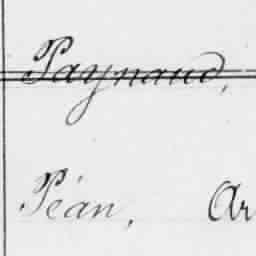 Paynaud,
Péan, Ar